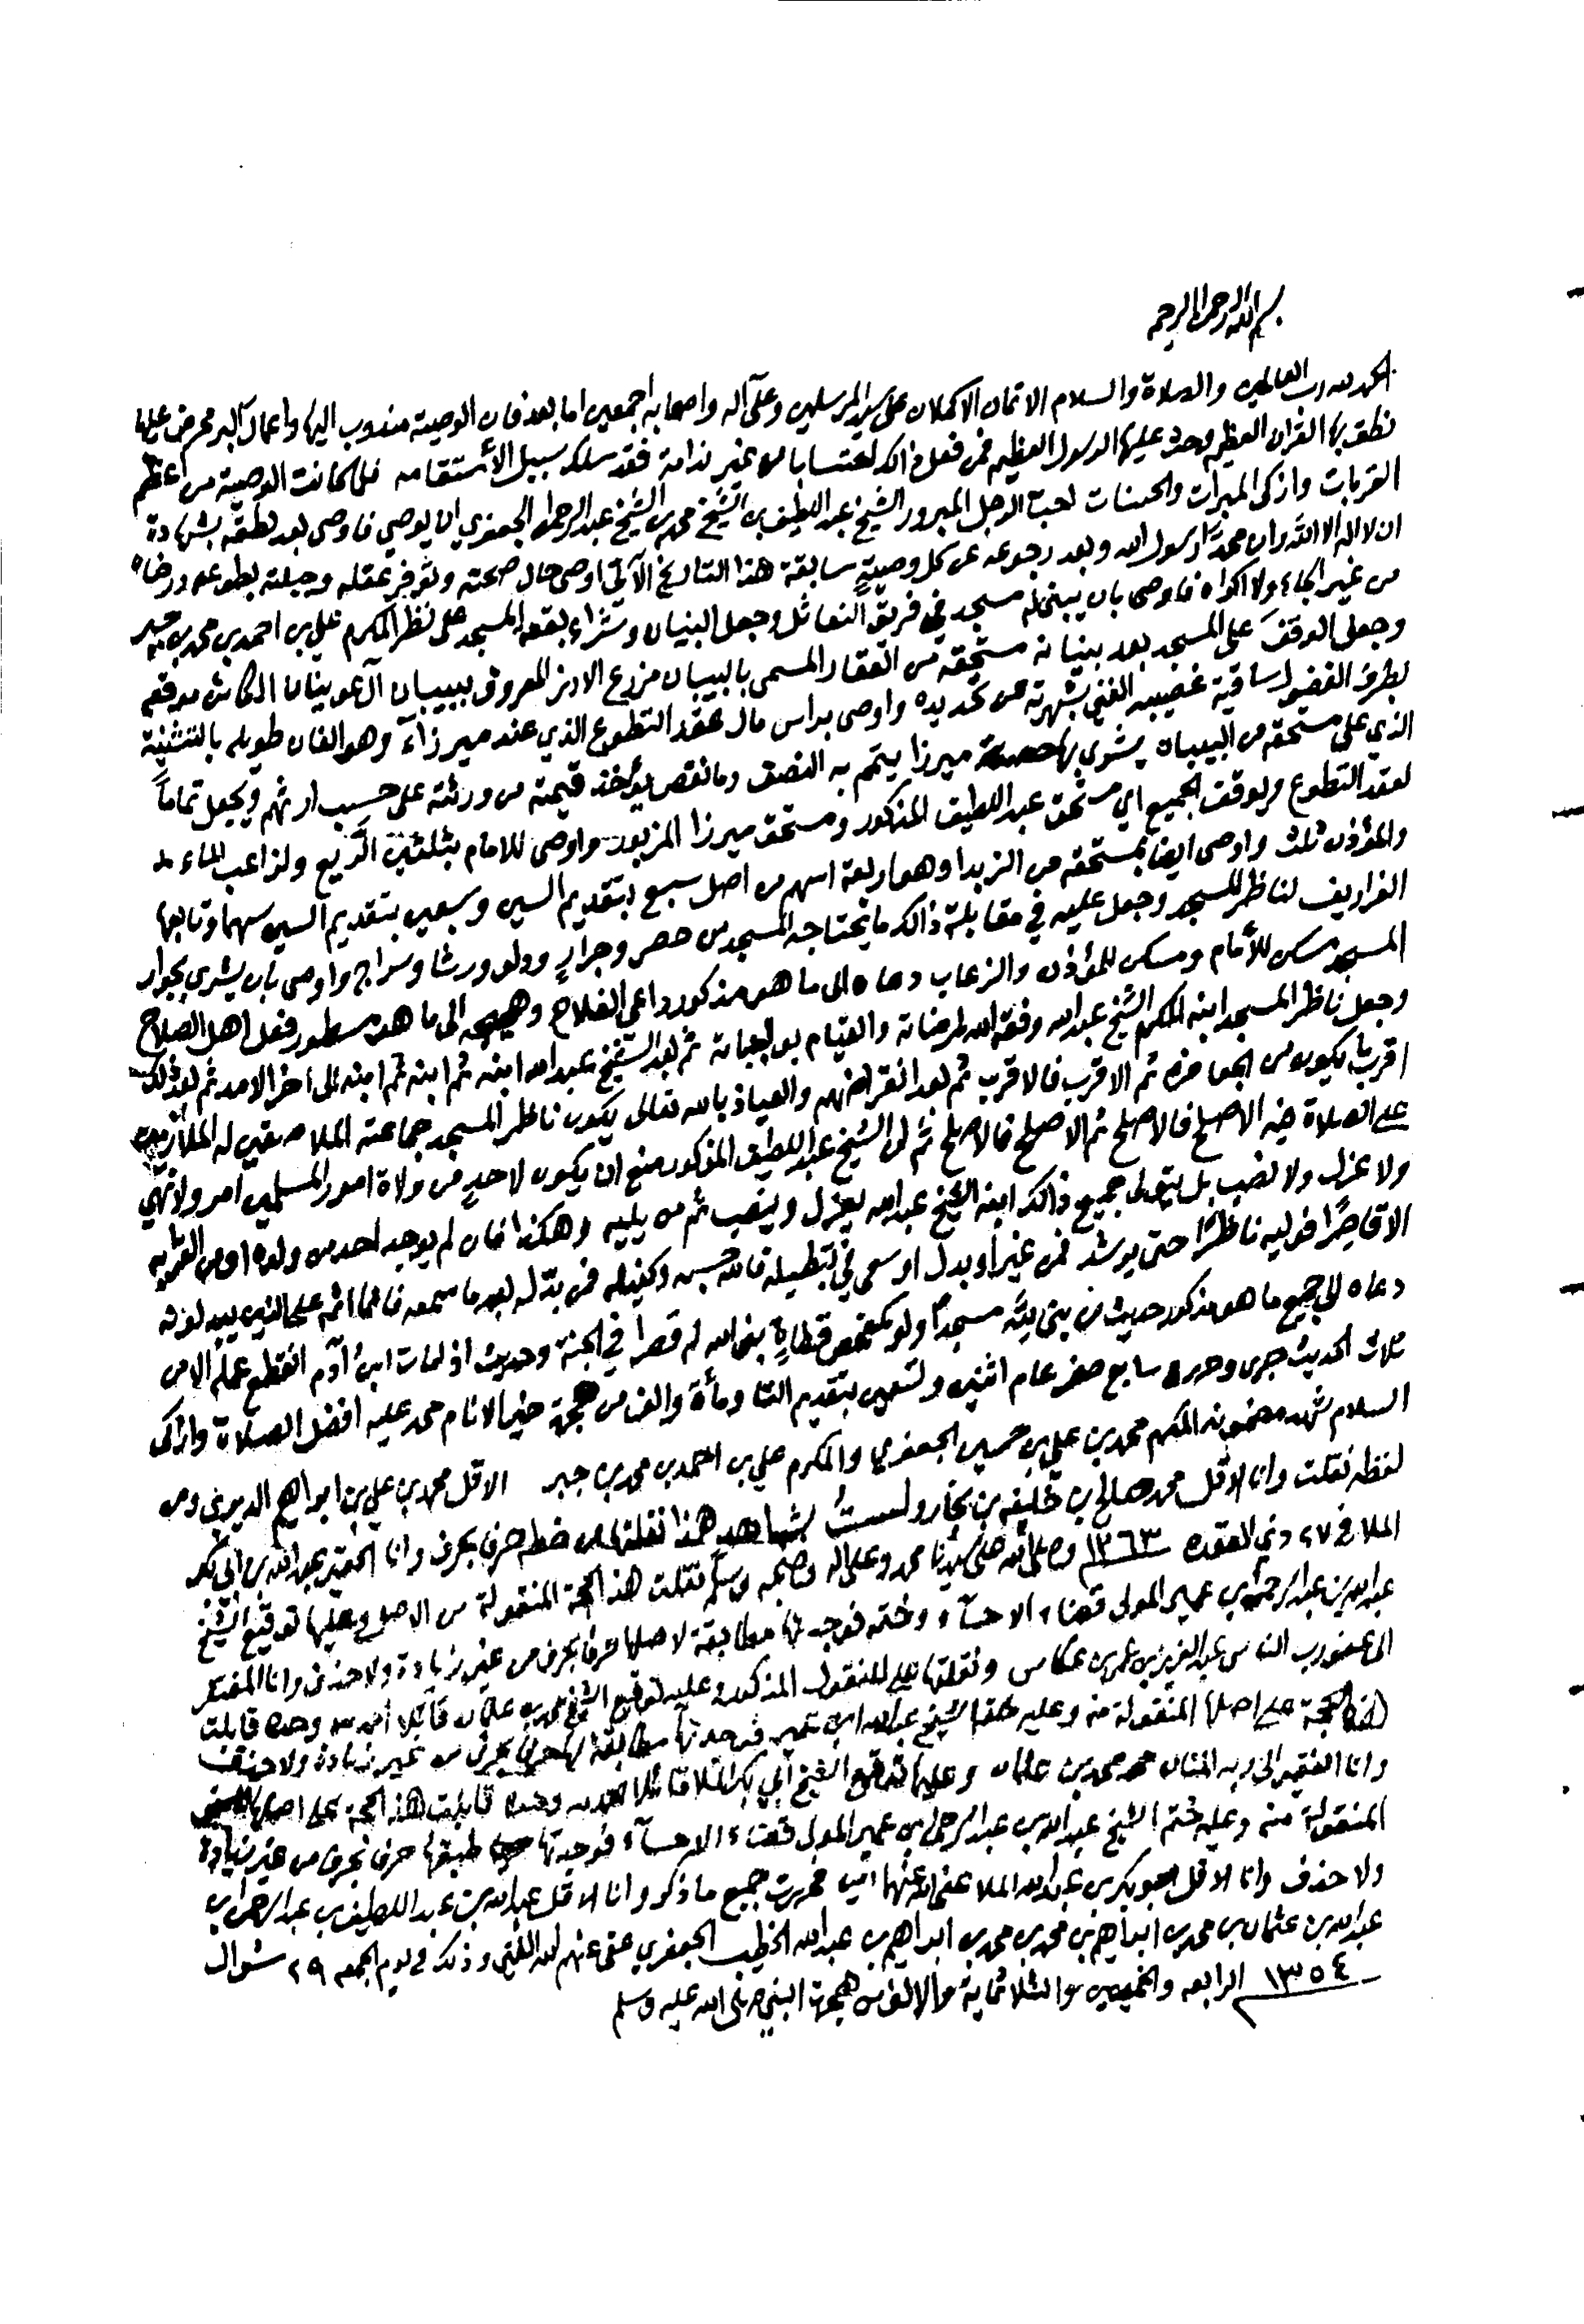 بسم الله الرحمن الرحيم
الحمد لله رب العالمين والصلاة والسلام الاتمان الاكملان على سيد المرسلين وعلى آله واصحابه اجمعين اما بعد فان الوصية مندوب اليها واعمال البر محرض عليها
نطق بها القران العظيم وحث عليها الرسول العظيم فمن فعل ذالك احتسابا من غير ندامة فقد سلك سبيل الأستقامه فلما كانت الوصية من اعظم
القربات وازكى المبرات والحسنات احب الرجل المبرور الشيخ عبد اللطيف بن الشيخ محمد بن الشيخ عبد الرحمن الجعفري ان يوصي فاوصى بعد نطقه بشهادة
ان لا اله الا الله وان محمدًا رسول الله وبعد رجوعه عن كل وصيةٍ سابقة هذا التاريخ الآتي اوصى حال صحته وتوفر عقله وجبلته بطوعه ورضاه
من غير الجاء ولا اكراه فاوصى بان يبنى له مسجد في فريق النعاثل وجعل البنيان وشراء بقعة المسجد على نظر المكرم علي بن احمد بن محمد بن جبر
وجعل الوقف على المسجد بعد بنيانه مستحقه من العقار المسمى بالبيبان مزرع الارز المعروف ببيبان آل عوينان الكائن موقعه
بطرف الفضول ساقية غصيبه الغني بشهرته عن تحديده واوصى براس مال عقد التطوع الذي عند ميرزاآء وهو الفان طويله بالتثنية
الذي على مستحقه من البيبان يشرى بها حصة ميرزا يتمم به النصف وما نقص يؤخذ قيمته من ورثته على حسب ارثهم ويجعل تماماً
لعقد التطوع ويوقف الجميع اي مستحق عبد اللطيف المذكور ومستحق ميرزا المزبور واوصى للامام بثلثين الريع ولزاعب الماء له
والمؤذن ثلث واوصى ايضا بمستحقه من الزبدا وهو اربعة اسهم من اصل سبع بتقديم السين وسبعين بتقديم السين سهما وتابعها
الفراريف لناظر المسجد وجعل عليه في مقابلة ذالك ما يحتاجه المسجد من حصر وجرارٍ ودلو ورشا وسراج واوصى بان يشرى بجوار
المسجد مسكن للأمام ومسكن للمؤذن والزعاب دعاه الى ما هو مذكور داعي الفلاح وهيجه الى ما هو مسطور فعل اهل الصلاح
وجعل ناظر المسجد ابنه المكرم الشيخ عبد الله وفقه الله لمرضاته والقيام بواجباته ثم بعد الشيخ عبد الله ابنه ثم ابنه ثم ابنه الى اخر الامد ثم بعد ذلك
اقربا يكون من الجعافره ثم الاقرب فالاقرب ثم بعد انقراضهم والعياذ بالله تعالى يكون ناظر المسجد جماعته الملاصقين له الملازمين
على الصلاة فيه الاصلح فالاصلح ثم الاصلح فالاصلح ثم ان الشيخ عبد اللطيف المذكور منع ان يكون لاحدٍ من ولاة امور المسلمين امر ولا نهي
ولا عزل ولا نصب بل يتولى جميع ذالك ابنه الشيخ عبد الله يعزل وينصب ثم من يليه وهكذا فان لم يوجد احد من ولده او من القرابه
الا قاصرًا فوليه ناظرًا حتى يرشد فمن غير او بدل او سعى في تبطيله فالله حسبه وكفيله فمن بدّله بعد ما سمعه فانما اثمه على الذين يبدلونه
دعاه الى جميع ما هو مذكور حديث من بنى لله مسجداً ولو كمفحص قطاةٍ بنى الله له قصرا في الجنة وحديث اذا مات ابن آدم انقطع عمله الا من
ثلاث الحديث جرى وحرر سابع صفر عام اثنين وتسعين بتقديم التا ومأة والف من هجرة خير الانام محمد عليه افضل الصلاة وازكى
السلام شهد مضمونه المكرم محمد بن علي بن حسين الجعفري والمكرم علي بن احمد بن محمد بن جبر الاقل محمد بن علي بن ابراهيم الديرني ومن
لفظه نقلت وانا الاقل محمد صالح بن خليفه بن بخار ولستُ بشاهدٍ هذا نقلتها من خطه حرف بحرف وانا الحقير عبد الله بن ابي بكر
الملا في ٢٧ ذي القعده ١٣٦٣ وصلى الله على سيدنا محمد وعلى اله وصحبه وسلم نقلت هذه الحجة المنقولة من الاصل وعليها توقيع الشيخ
عبد الله بن عبد الرحمن بن عمير المولى قضاء الاحسآء وختمه فوجدتها مطابقة لاصلها حرف بحرف من غير زيادة ولا حذف وانا المفتقر
الى عفو رب الناس عبد العزيز بن عمر بن عكاس ونقلتها على المنقول المذكور وعليه توقيع الشيخ محمد بن علمان قائلا الحمد لله وحده قابلت
هذه الحجة على اصلها المنقولة منه وعليه ختم الشيخ عبد الله ابن عمير فوجدتها مطابقة لها حرف بحرف من غير زيادة ولا حذف
وانا الفقير الى ربه المنان محمد بن علمان وعليها توقيع الشيخ ابي بكر الملا قائلا الحمد لله وحده قابلت هذه الحجة على اصلها
المنقولة منه وعليه ختم الشيخ عبد الله بن عبد الرحمن بن عمير المولى قضاء الاحسآء فوجدتها طبقها حرف بحرف من غير زيادة
ولا حذف وانا الاقل ابو بكر بن عبد الله الملا عفى الله عنهما امين تحررت جميع ما ذكر وانا الاقل عبد الله بن عبد اللطيف بن عبد الرحمن بن
عبد الله بن عثمان بن محمد بن ابراهيم بن محمد بن محمد بن ابراهيم بن عبد الله الخطيب الجعفري عفى عنهم الله الغني وذلك في يوم الجمعه ٢٩ شوال
١٣٥٤ الرابعه والخمسين والثلاثماية والالف من هجرة النبي صلى الله عليه وسلم